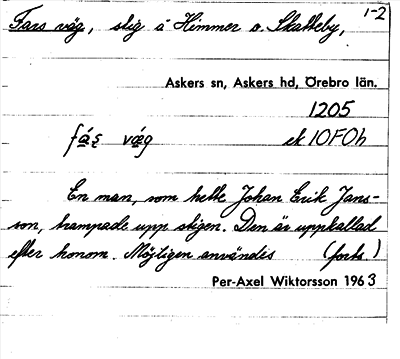 Fars väg, stig å Himmer o. Skatteby, 1-2
Askers sn, Askers hd, Örebro län.
1205
fás̠ vä́g ek 10F0h
En man, som hette Johan Erik Jans-
son, trampade upp stigen. Den är uppkallad
efter honom. Möjligen användes (forts.)
Per-Axel Wiktorsson 1963